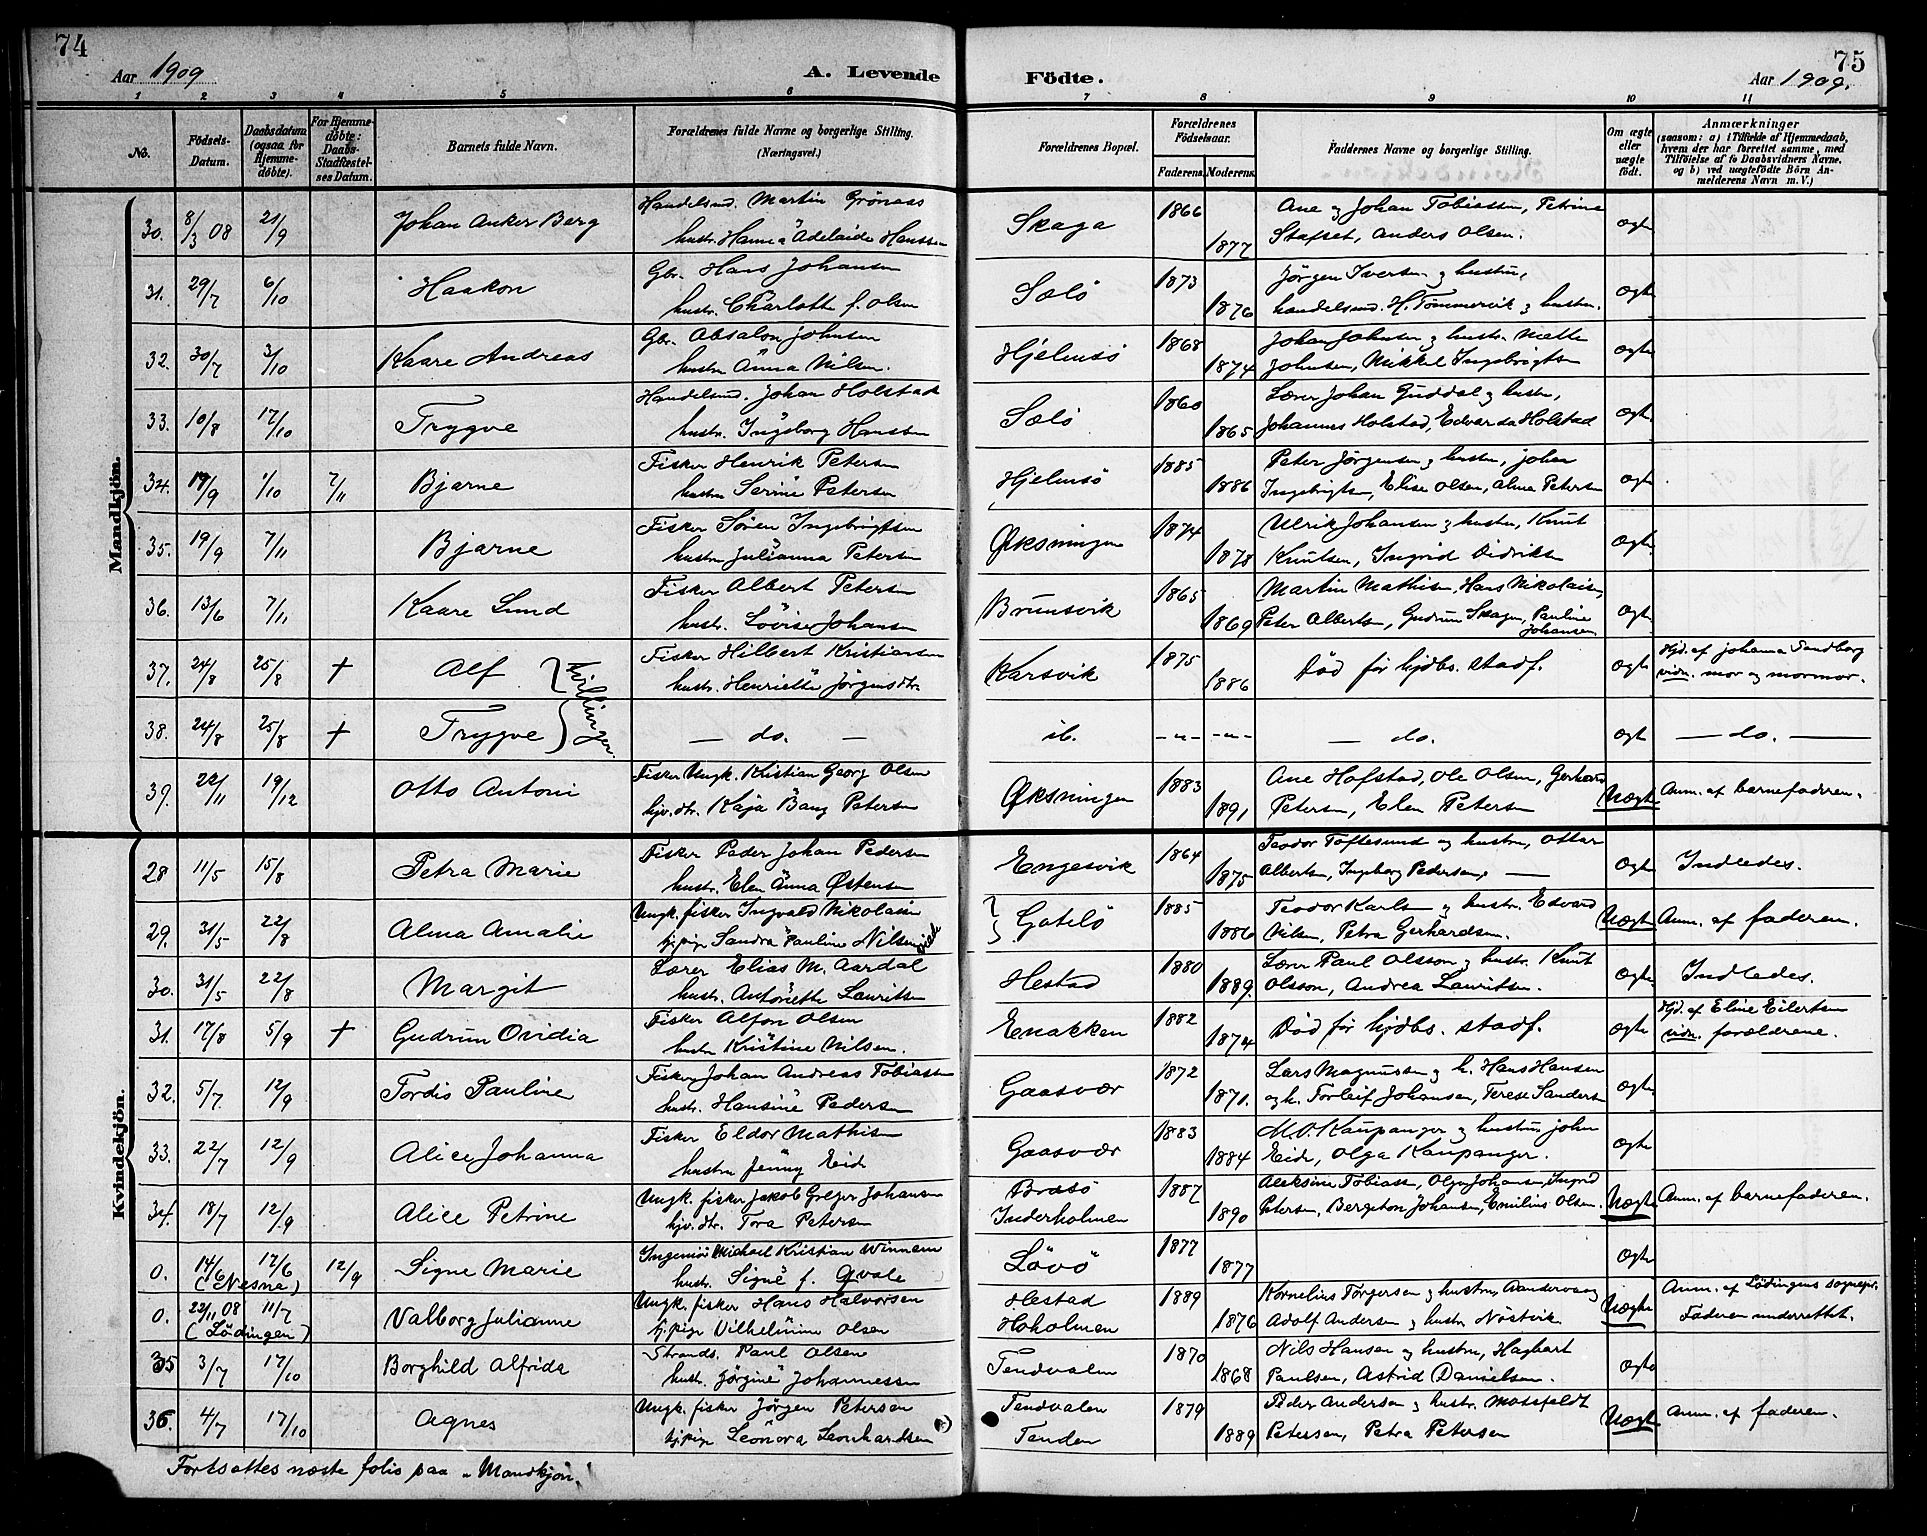 74
Aar 1909
A. Levende
Födte.
75
Aar 1909.
1 2 3 4 5 6 7 8 9 10 11
No.
Födsels-Datum.
Daabsdatum (ogsaa for Hjemmedöbte).
For Hjemmedöbte: Daabs-Stadfæstelses Datum.
Barnets fulde Navn.
Forældrenes fulde Navne og borgerlige Stilling. (Næringsvei.)
Forældrenes Bopæl.
Forældrenes Födselsaar.
Faderens. Moderens.
Faddernes Navne og borgerlige Stilling.
Om ægte eller uægte födt.
Anmærkninger
(saasom: a) i Tilfælde af Hjemmedaab,
hvem der har forrettet samme, med
Tilföielse af to Daabsvidners Navne,
og b) ved uægtefödte Börn Anmelderens Navn m. V.)
Mandkjön.
30. 8/3 08 21/9 Johan Anker Berg Handelsmd. Martin Grönaas Skaga 1866 Ane og Johan Tobiassen, Petrine ægte
hustr. Hanna Adelaide Hanssen 1877 Stafset, Anders Olsen.
31. 29/7 6/10 Haakon Gbr. Hans Johansen Solö 1873 Jörgen Iversen og hustru, ægte
hustr. Charlotte f. Olsen 1876 handelsmd. H. Tömmervik og hustru.
32. 30/7 3/10 Kaare Andreas Gbr. Absalon Johnsen Hjelmsö 1868 Johan Johnsen og hustr. Mette ægte
hustru Anna Nilsen. 1874 Johnsen, Mikkel Ingebrigtsen
33. 10/8 17/10 Trygve Handelsmd. Johan Holstad Solö 1860 Lærer Johan Guddal og hustru, ægte
hustr. Ingeborg Hanssen 1865 Johannes Holstad, Edvarda Holstad
34. 19/9 1/10 7/11 Bjarne Fisker Henrik Petersen Hjelmsö 1885 Peter Jörgensen og hustru, Johan ægte
hustru Serine Petersen 1886 Ingebrigtsen, Elise Olsen, Alma Petersen
35. 19/9 7/11 Bjarne Fisker Sören Ingebrigtsen Øksningen 1874 Ulrik Johansen og hustru, Knut ægte
hustru Julianna Petersen 1878 Knutsen, Ingrid Didriksen
36. 13/6 7/11 Kaare Lund Fisker Albert Petersen Brunsvik 1865 Martin Mathisen, Hans Nikolaisen, ægte
hustr. Lovise Johansen 1869 Peter Albertsen, Gudrun Skagen, Pauline
Johansen
37. 24/8 25/8 † Alf } Tvillinger. Fisker Hilbert Kristiansen Karsvik 1875 Död för hjdbs. stadf. ægte Hjd. af Johanna Sandberg
hustr. Henriette Jörgensdtr. 1886 vidn. mor og mormor.
38. 24/8 25/8 † Trygve — do. — ib. -"- -"- — do. ægte — do. —
39. 22/11 19/12 Otto Antoni Fisker Ungk. Kristian Georg Olsen Øksningen 1883 Ane Hofstad, Ole Olsen, Gerhard Uægte Anm. af barnefaderen.
hjv. dtr. Kaja Bang Petersen 1891 Petersen, Elen Petersen
Kvindekjön.
28 11/5 15/8 Petra Marie Fisker Peder Johan Pedersen Engesvik 1864 Teodor Toftesund og hustru, Ottar ægte Indledes.
hustr. Elen Anna Østensen 1875 Albertsen, Ingeborg Pedersen, —
29. 31/5 22/8 Alma Amalie Ungk. fisker Ingvald Nikolaisen } Gatelö 1885 Teodor Karlsen og hustr. Edvard Uægte Anm. af faderen.
tj.pige Sandra Pauline Nilsen 1886 Nilsen, Petra Gerhardsen.
30. 31/5 22/8 Margit Lærer Elias M. Aardal Hestad 1880 Lærer Paul Olsson og hustr. Knut ægte Indledes.
hustr. Antoniette Lauritsen 1889. Olsson, Andrea Lauritsen.
31. 17/8 5/9 † Gudrun Ovidia Fisker Alfon Olsen Enakken 1882 Död för hjdbs. stadf. ægte Hjd. af Eline Eilertsen
hustru Kristine Nilsen. 1874 vidn. forældrene.
32. 5/7 12/9 Tordis Pauline Fisker Johan Andreas Tobiassen Gaasvær 1872 Lars Magnussen og h. Hans Hansen ægte
hustr. Hansine Pedersen 1871. og h. Torleif Johansen, Terese Sandersen
33. 22/7 12/9 Alice Johanna Fisker Eldor Mathisen Gaasvær 1883 M. O. Kaupanger og hustru John ægte
hustru Jenny Eide 1884 Eide, Olga Kaupanger.
34. 18/7 12/9 Alice Petrine Ungk. fisker Jakob Greger Johansen Brasö 1887 Aleksine Tobiassen, Olga Johansen, Ingrid Uægte Anm. af barnefaderen.
hjv. dtr. Tora Petersen Inderholmen 1890 Petersen, Bergiton Johansen, Emilius Olsen.
0. 14/6 17/6 12/9 Signe Marie Ingeniör Michael Kristian Winnem Lövö 1877 ægte
(Nesna) hustr. Signe f. Qvale 1877
0. 22/11 08 11/7 Valborg Julianne Ungk. fisker Hans Halvorsen Hestad 1889 Kornelius Torgersen og hustru, Aandervaag Uægte Anm. af Lödingens sognepr.
(Lödingen) tj.pige Vilhelmine Olsen Hoholmen 1876 Adolf Andersen og hustr. Nöstvik Faderen underrettet.
35 3/7 17/10 Borghild Alfrida Strands. Paul Olsen Tendvalen 1870 Nils Hansen og hustru, Hagbart ægte
hustr. Jörgine Johannessen 1868 Paulsen, Astrid Danielsen.
36 4/7 17/10 Agnes Ungk. fisker Jörgen Petersen Tendvalen 1879 Peder Andersen og hustr. Mossfeldt Uægte Anm. af faderen.
tj.pige Leonora Leonhardsen Tenden 1889 Petersen, Petra Petersen
Fortsættes næste folio paa „Mandkjön."